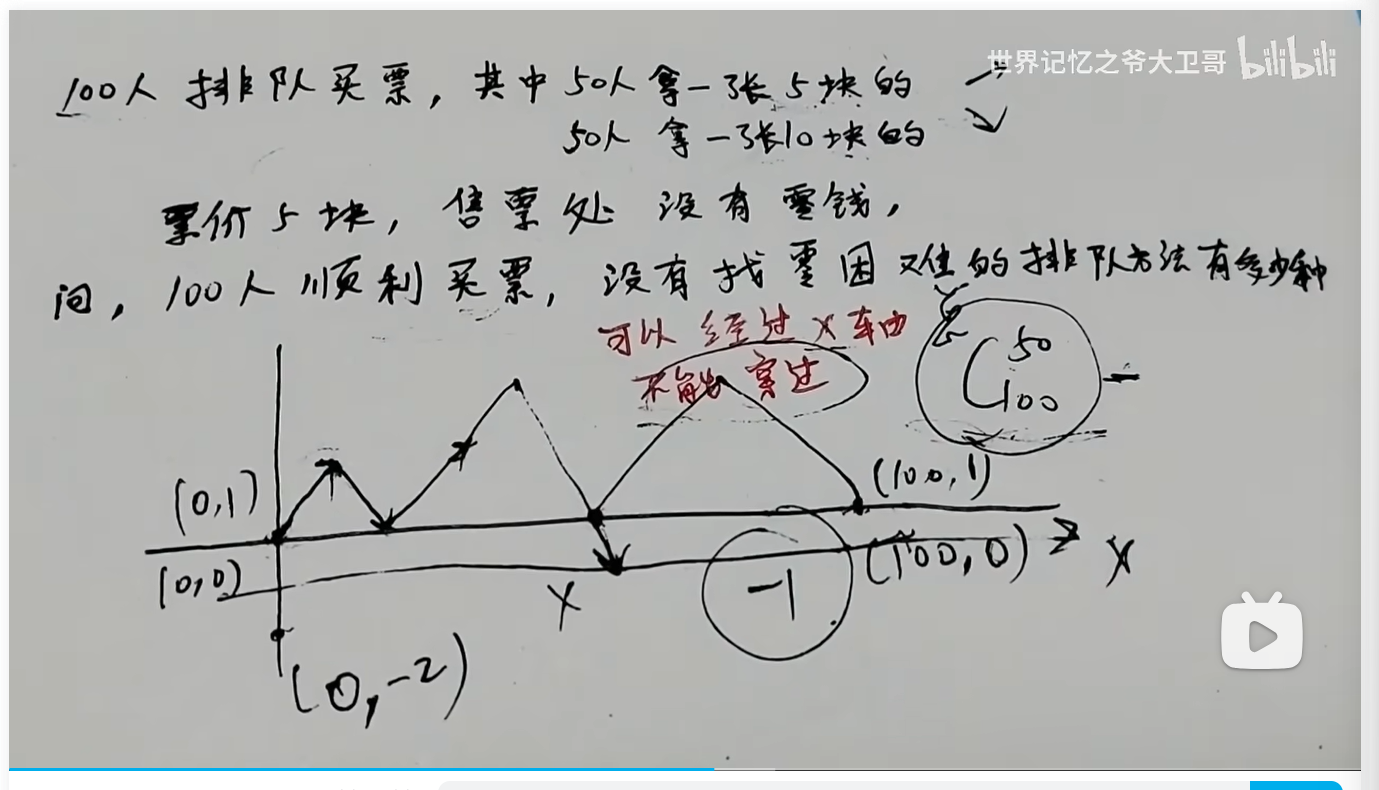 世界记忆之爷大卫哥 bilibili
100人排队买票，其中50人拿一张5块的
50人拿一张10块的
票价5块，售票处没有零钱，
问，100人顺利买票，没有找零困难的排队方法有多少种
可以经过X轴由
不能穿过
C 50 100 -
(0,1)
(100,1)
(0,0)
X
-1
(100,0)
X
(0,-2)